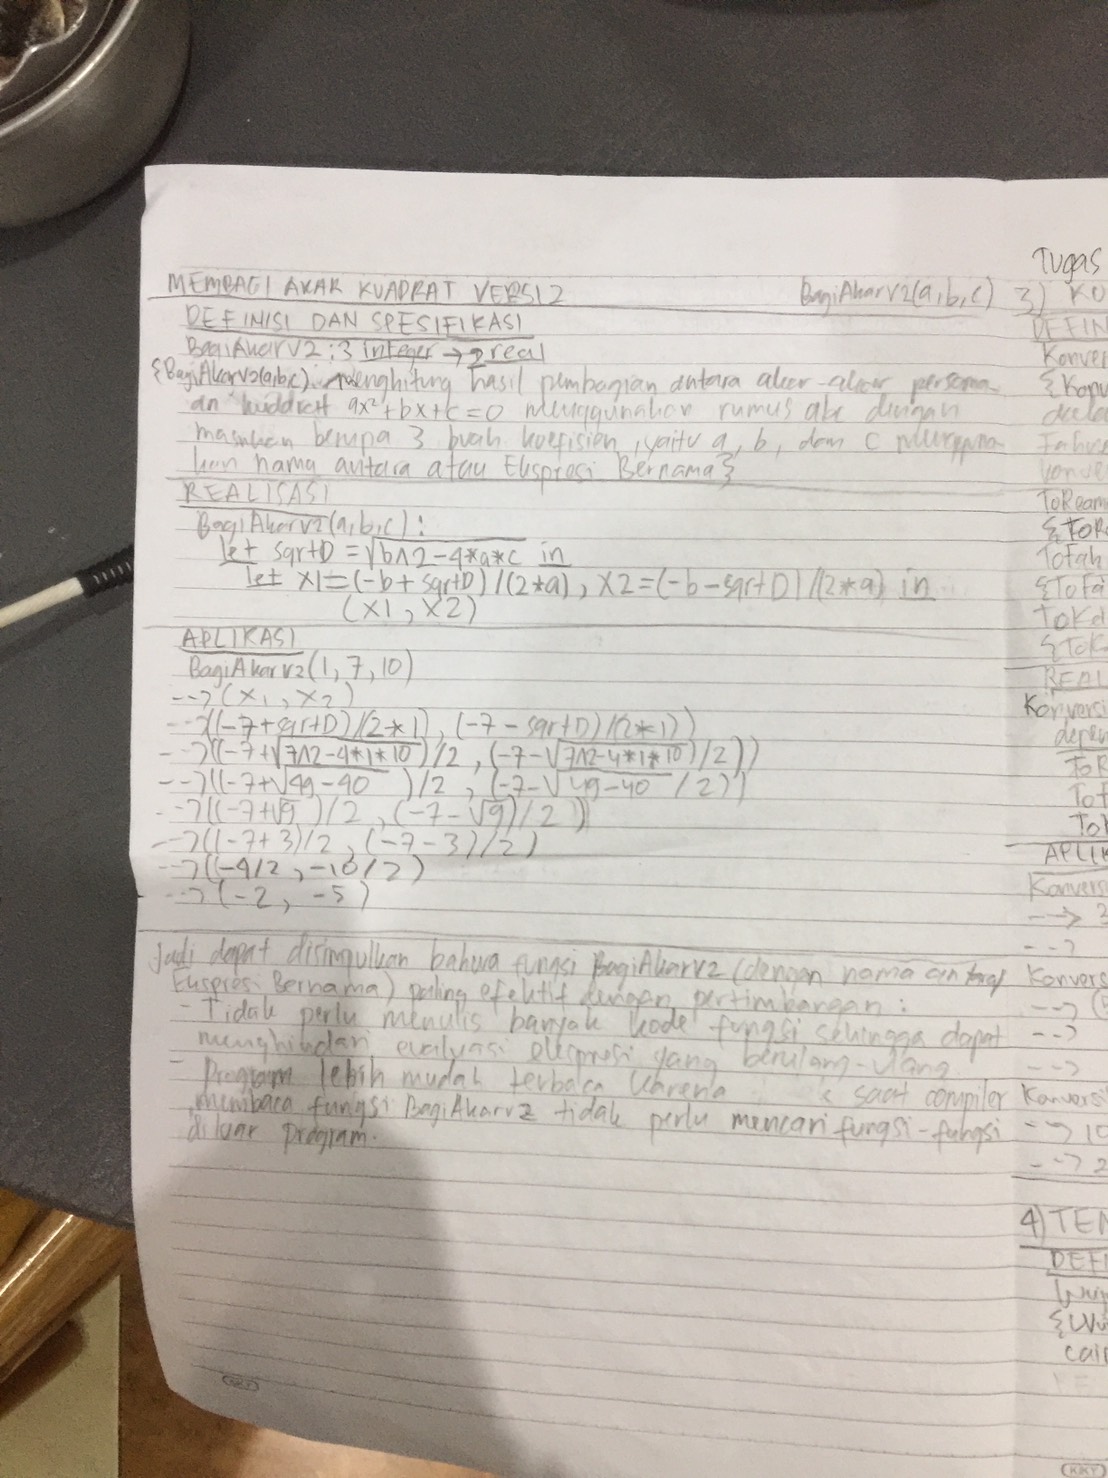 MEMBAGI AKAR KUADRAT VERSI 2 BagiAkarV2(a,b,c)
DEFINISI DAN SPESIFIKASI
BagiAkarV2 : 3 integer → 2 real
{BagiAkarV2(a,b,c) menghitung hasil pembagian antara akar-akar persama-
an kuadrat ax²+bx+c=0 menggunakan rumus abc dengan
masukan berupa 3 buah koefisien, yaitu a, b, dan c mengguna
kan nama antara atau Ekspresi Bernama}
REALISASI
BagiAkarV2(a,b,c):
let sqrtD = √b^2-4*a*c in
let x1=(-b+sqrtD)/(2*a), x2=(-b-sqrtD)/(2*a) in
(x1, x2)
APLIKASI
BagiAkarV2(1, 7, 10)
--> (x1, x2)
--> ((-7+sqrtD)/(2*1), (-7-sqrtD)/(2*1))
--> ((-7+√7^2-4*1*10)/2, (-7-√7^2-4*1*10)/2))
--> ((-7+√49-40 )/2 , (-7-√49-40 /2))
--> ((-7+√9 )/2 , (-7-√9)/2 ))
--> ((-7+3)/2, (-7-3)/2)
--> ((-4/2, -10/2)
--> (-2, -5)
Jadi dapat disimpulkan bahwa fungsi BagiAkarV2 (dengan nama antara/
Ekspresi Bernama) paling efektif dengan pertimbangan:
- Tidak perlu menulis banyak kode fungsi, sehingga dapat
menghindari evaluasi ekspresi yang berulang-ulang
- Program lebih mudah terbaca karena saat compiler
membaca fungsi BagiAkarV2 tidak perlu mencari fungsi-fungsi
diluar program.
Tugas
3) KO
DEFIN
Konver
{Konv
Fahre
ToReam
{ToR
ToFah
{ToFa
ToK
{ToK
REAL
Konversi
depen
ToR
ToF
ToK
APLIK
Konvers
--> 3
-->
Konvers
-->
-->
-->
Konversi
--> 10
--> 2
4) TEN
DEFI
Wuj
{Wu
cair